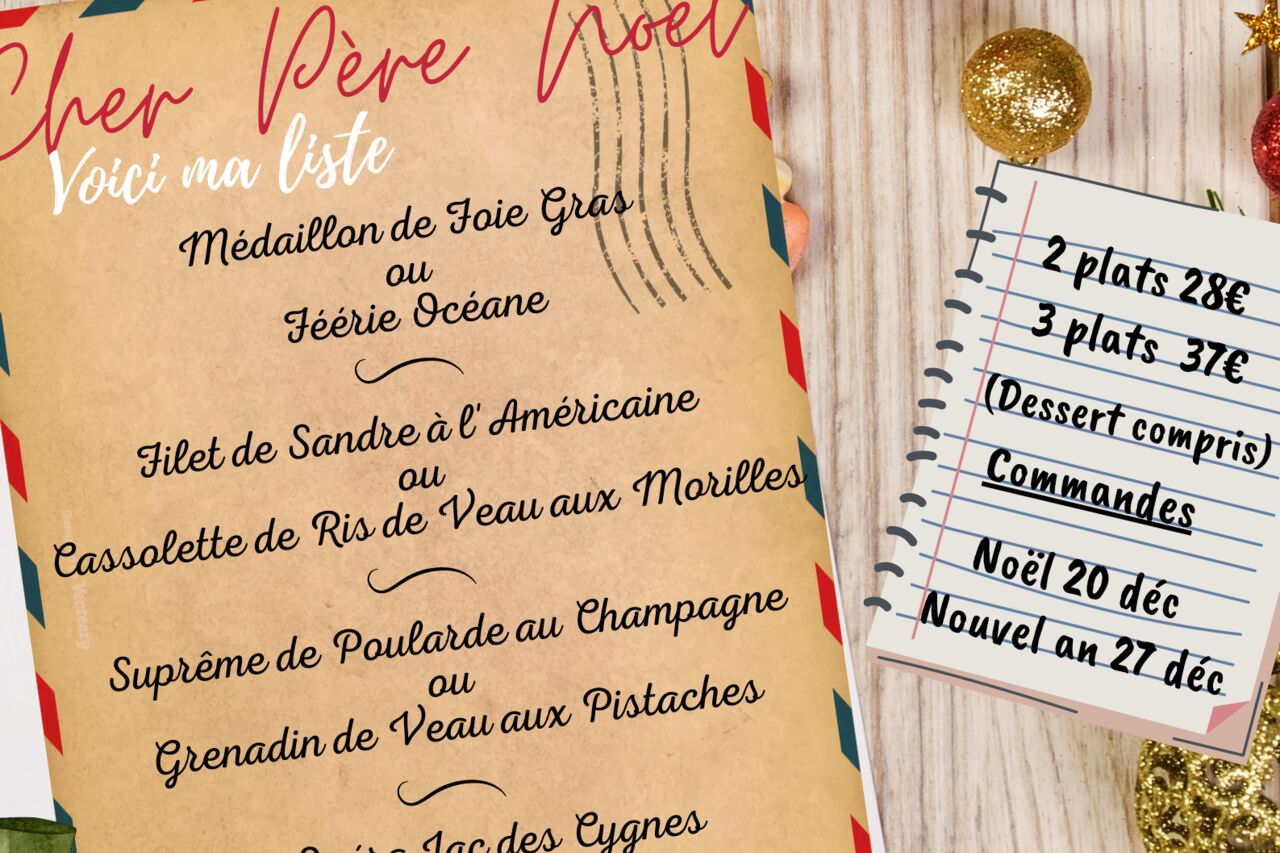 Cher Père Noël
Voici ma liste
Médaillon de Foie Gras
ou
Féérie Océane
Filet de Sandre à l' Américaine
ou
Cassolette de Ris de Veau aux Morilles
Suprême de Poularde au Champagne
ou
Grenadin de Veau aux Pistaches
Opéra Lac des Cygnes
2 plats 28€
3 plats 37€
(Dessert compris)
Commandes
Noël 20 déc
Nouvel an 27 déc